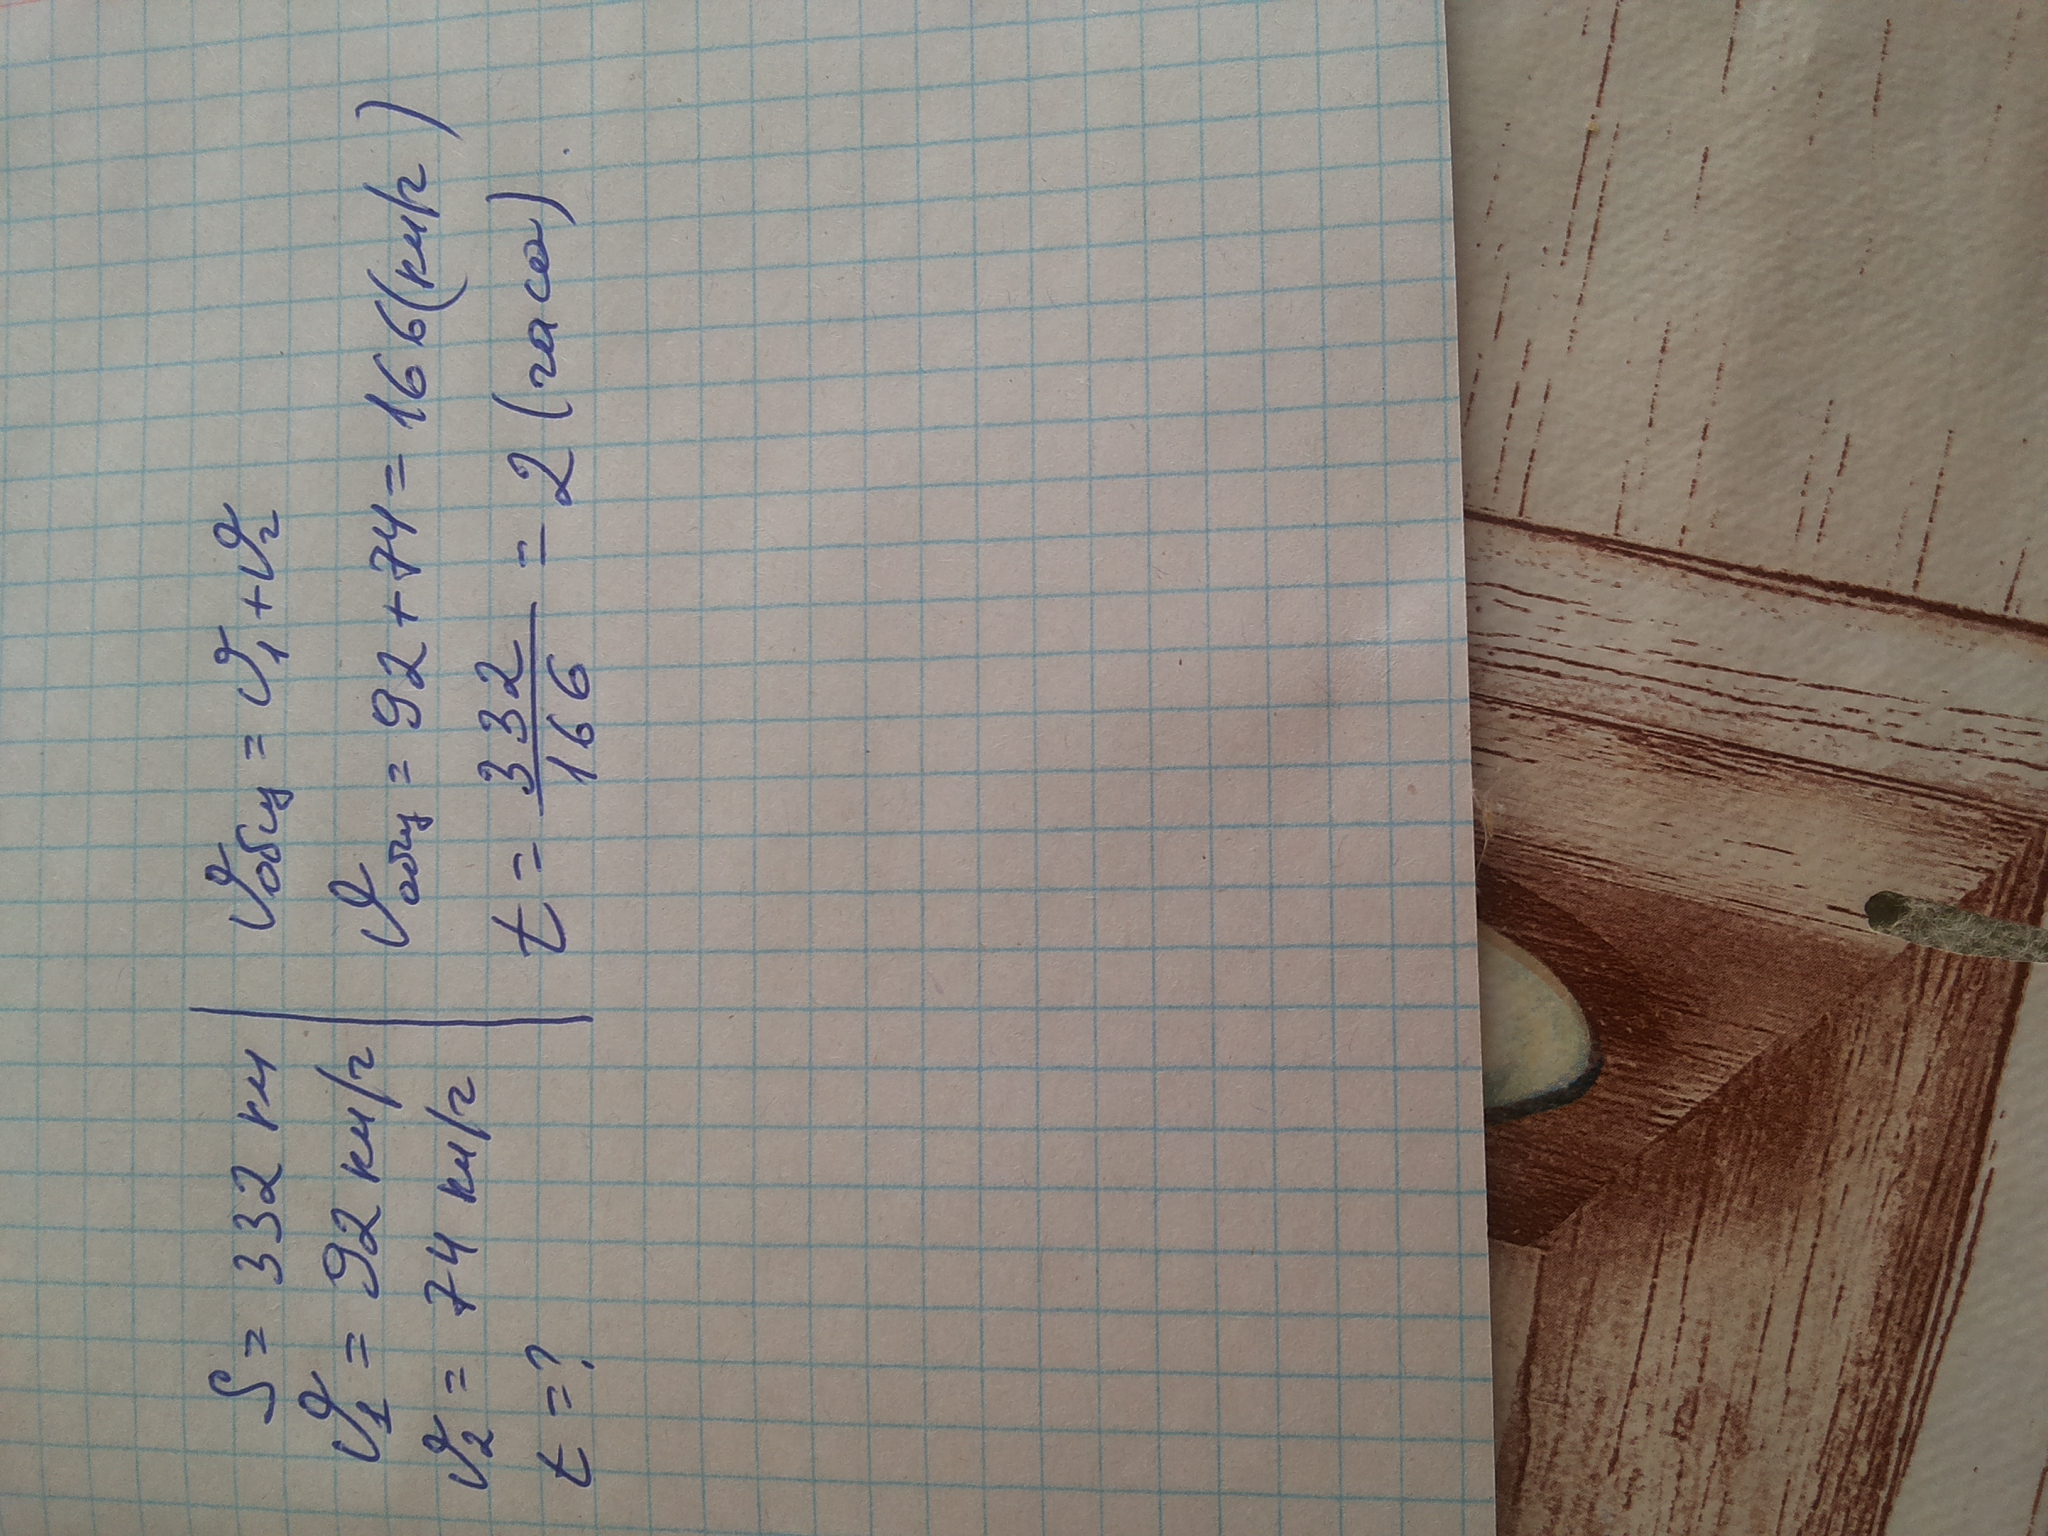 S = 332 км
𝒱₁ = 92 км/ч
𝒱₂ = 74 км/ч
t = ?
𝒱общ = 𝒱₁ + 𝒱₂
𝒱общ = 92 + 74 = 166 (км/ч)
t = 332/166 = 2 (часа)